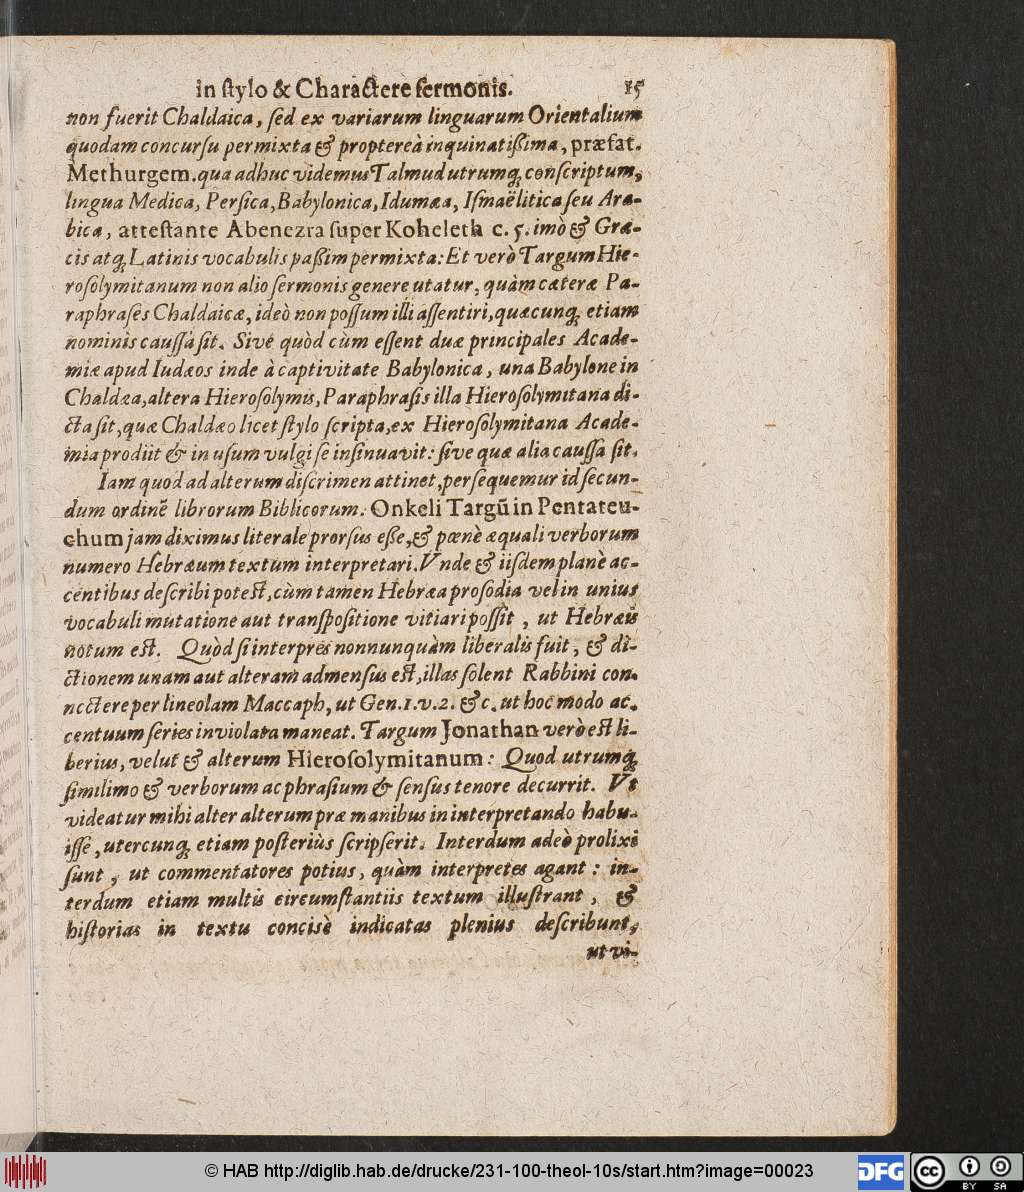 in ſtylo & Charactere ſermonis. 15
non fuerit Chaldaica, ſed ex variarum linguarum Orientalium
quodam concurſu permixta & proptereà inquinatißima, præfat.
Methurgem. qua adhuc videmus Talmud utrumq; conſcriptum,
lingua Medica, Perſica, Babylonica, Idumæa, Iſmaëlitica ſeu Ara-
bica, atteſtante Abenezra ſuper Koheleth c. 5. imò & Græ-
cis atq; Latinis vocabulis paßim permixta: Et verò Targum Hie-
roſolymitanum non alio ſermonis genere utatur, quàm cæteræ Pa-
raphraſes Chaldaicæ, ideò non poſſum illi aſſentiri, quæcunq; etiam
nominis cauſſa ſit. Sive quòd cùm eſſent duæ principales Acade-
miæ apud Iudæos inde à captivitate Babylonica, una Babylone in
Chaldæa, altera Hieroſolymis, Paraphraſis illa Hieroſolymitana di-
cta ſit, quæ Chaldæo licet ſtylo ſcripta, ex Hieroſolymitana Acade-
mia prodiit & in uſum vulgi ſe inſinuavit: ſive quæ alia cauſſa ſit.
Iam quod ad alterum diſcrimen attinet, perſequemur id ſecun-
dum ordinẽ librorum Biblicorum. Onkeli Targũ in Pentateu-
chum jam diximus literale prorſus eſſe, & pœnè æquali verborum
numero Hebræum textum interpretari. Vnde & iiſdem planè ac-
centibus deſcribi poteſt, cùm tamen Hebræa proſodia vel in unius
vocabuli mutatione aut tranſpoſitione vitiari poſſit, ut Hebræis
notum eſt. Quòd ſi interpres nonnunquàm liberalis fuit, & di-
ctionem unam aut alteram admenſus eſt, illas ſolent Rabbini con-
nectere per lineolam Maccaph, ut Gen. 1. v. 2. &c. ut hoc modo ac-
centuum ſeries inviolata maneat. Targum Jonathan verò eſt li-
berius, velut & alterum Hieroſolymitanum: Quod utrumq;
ſimilimo & verborum ac phraſium & ſenſus tenore decurrit. Vt
videatur mihi alter alterum præ manibus in interpretando habu-
iſſe, utercunq; etiam poſteriùs ſcripſerit. Interdum adeò prolixi
ſunt, ut commentatores potius, quàm interpretes agant: in-
terdum etiam multis circumſtantiis textum illuſtrant, &
hiſtorias in textu concisè indicatas plenius deſcribunt,
ut vi-
© HAB http://diglib.hab.de/drucke/231-100-theol-10s/start.htm?image=00023
DFG cc BY SA